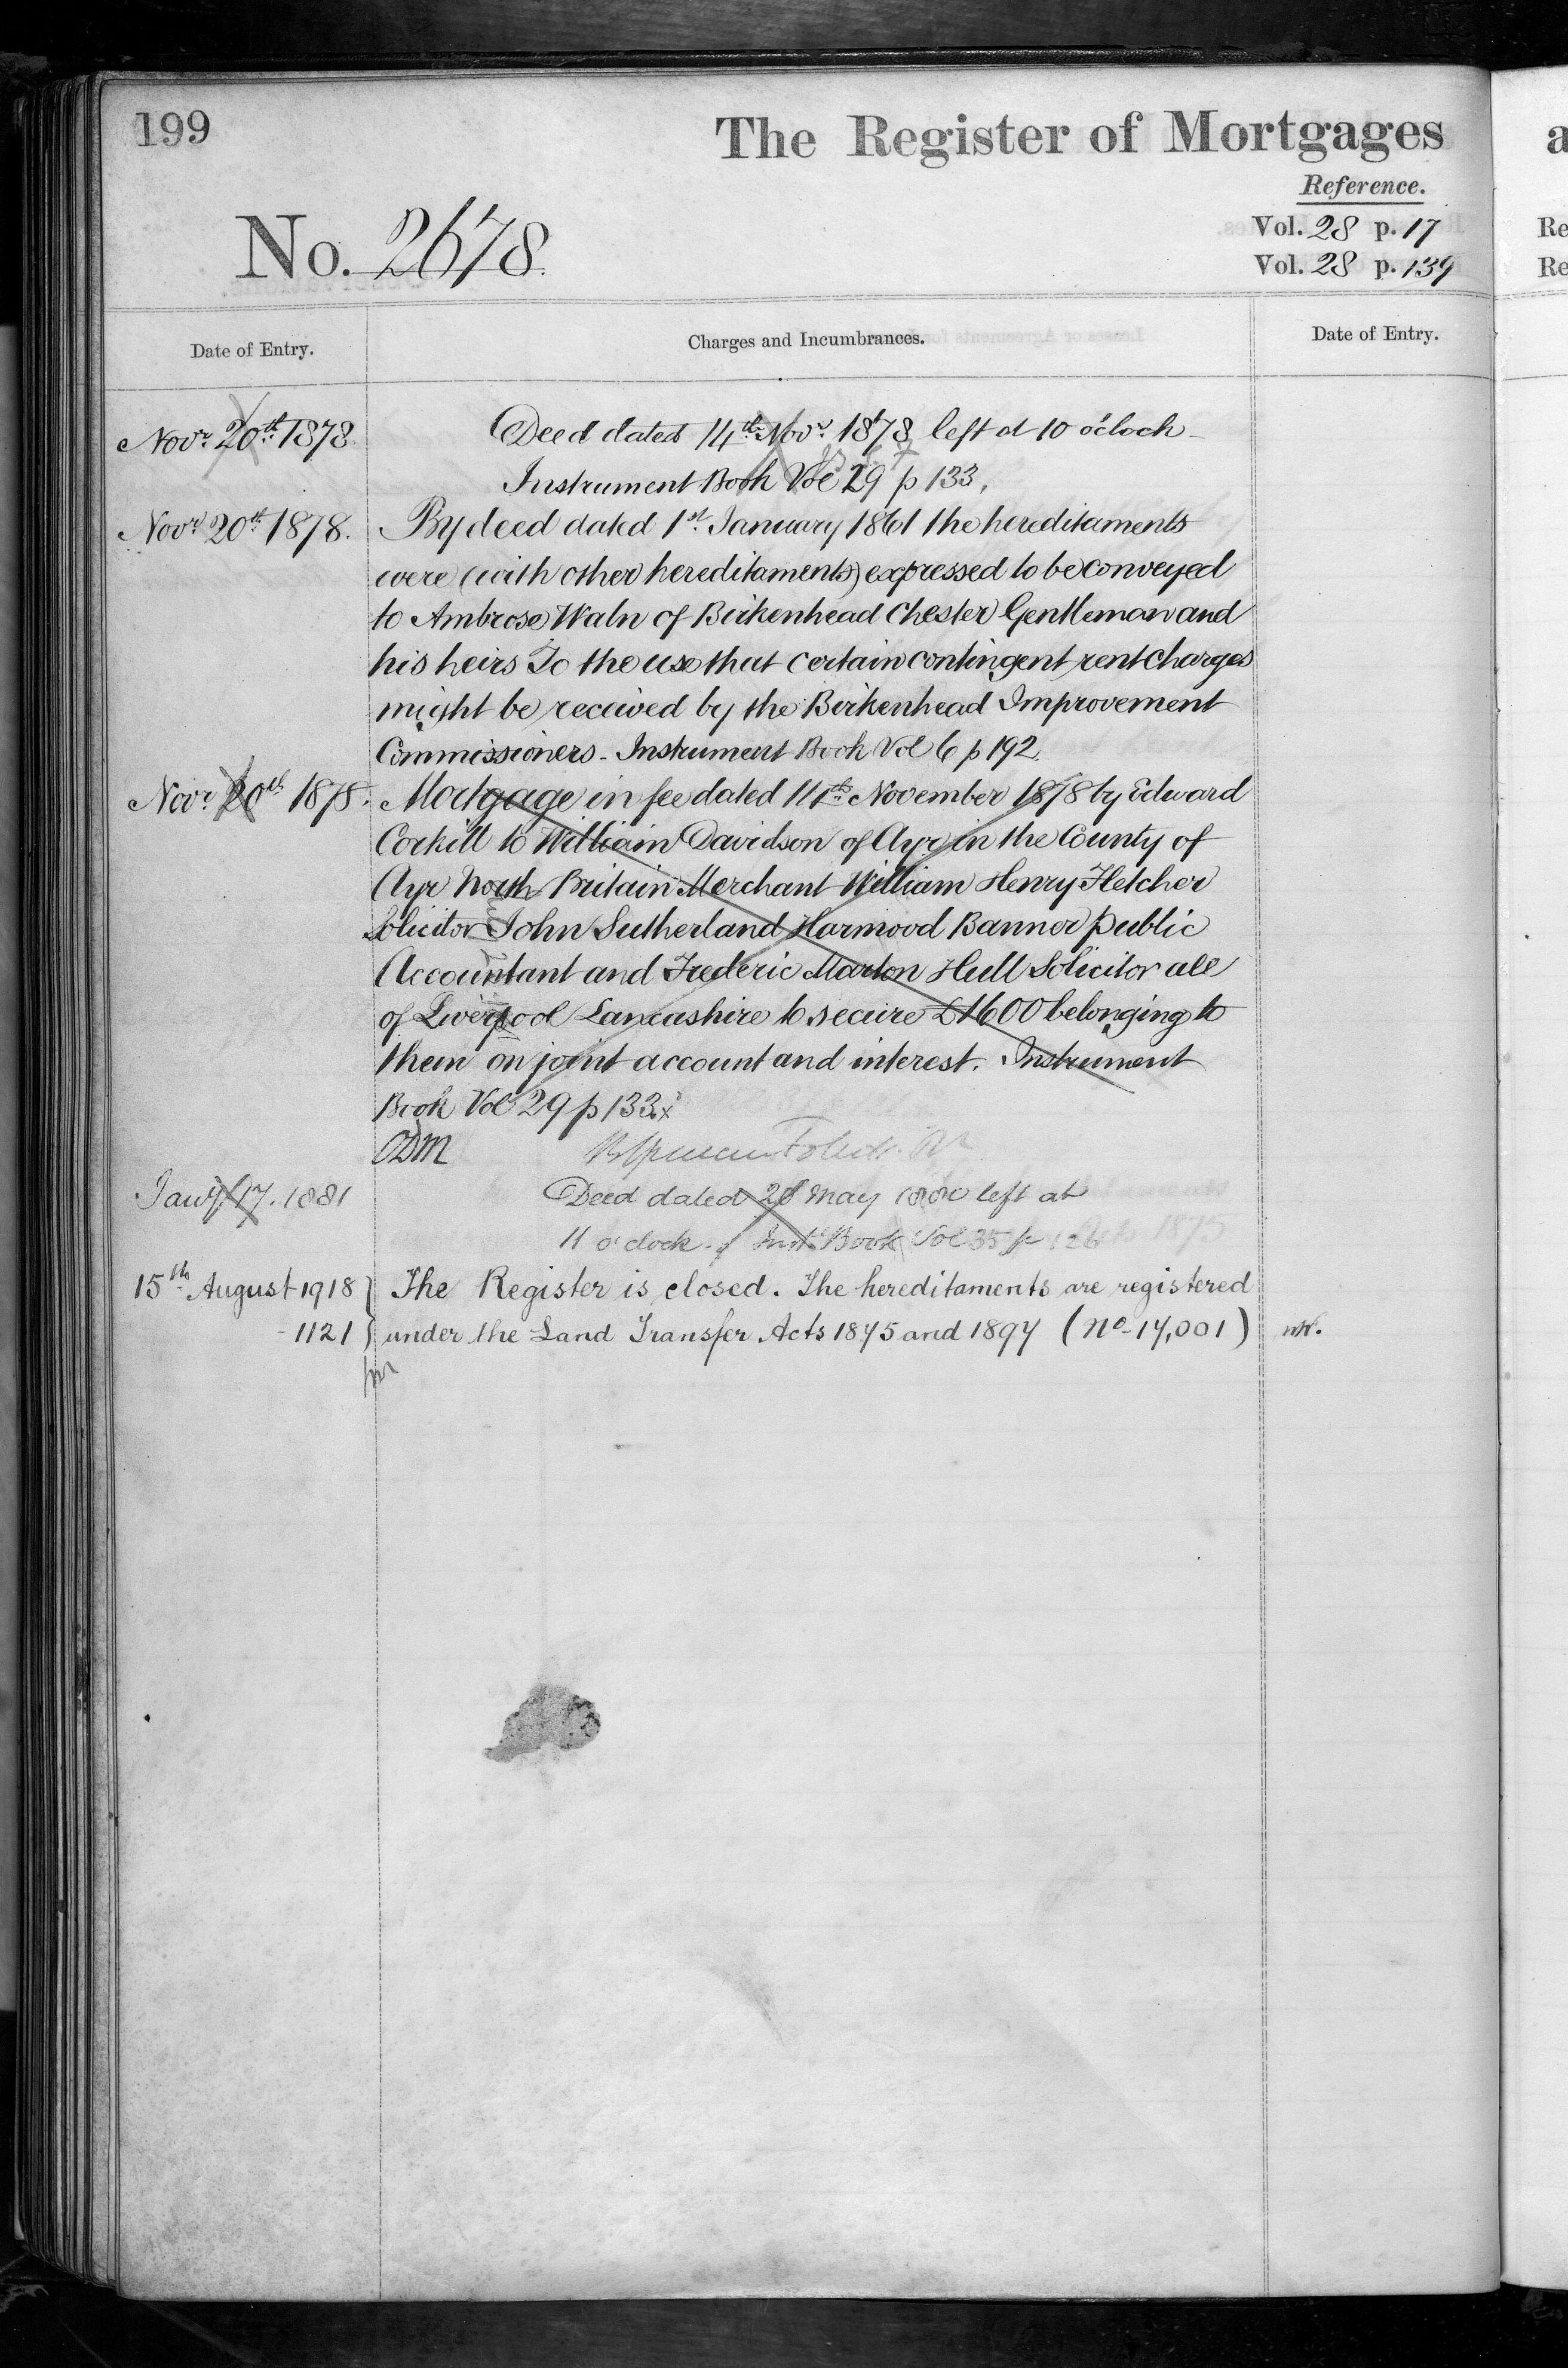 199
The Register of Mortgages
Reference.
No. 2678.
Vol. 28 p. 17
Vol. 28 p. 139
Date of Entry.
Charges and Incumbrances.
Date of Entry.
Novr. 20th. 1878
Deed dated 14th. Novr. 1878 left at 10 o'clock
Instrument Book Vol 29 p 133.
Novr. 20th. 1878.
By deed dated 1st. January 1861 the hereditaments
were (with other hereditaments) expressed to be conveyed
to Ambrose Waln of Birkenhead Chester Gentleman and
his heirs To the use that certain contingent rent charges
might be received by the Birkenhead Improvement
Commissioners - Instrument Book Vol 6 p 192.
Novr. 20th 1878.
Mortgage in fee dated 14th. November 1878 by Edward
Corkill to William Davidson of Ayr in the County of
Ayr North Britain Merchant William Henry Fletcher
Solicitor John Sutherland Harmood Banner public
Accountant and Frederic Marton Hull Solicitor all
of Liverpool Lancashire to secure £1600 belonging to
them on joint account and interest. Instrument
Book Vol 29 p 133.
ODM
Jany 17. 1881
Deed dated 28 May 1880 left at
11 o'clock. Inst. Book Vol 35 p 126
15th. August 1918
The Register is closed. The hereditaments are registered
1121
under the Land Transfer Acts 1875 and 1897 (No. 17,001)